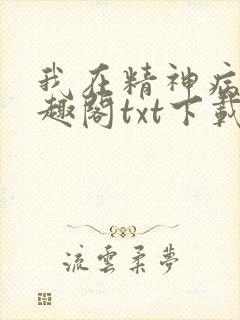 我在精神病
趣阁txt下载
流雲柔夢